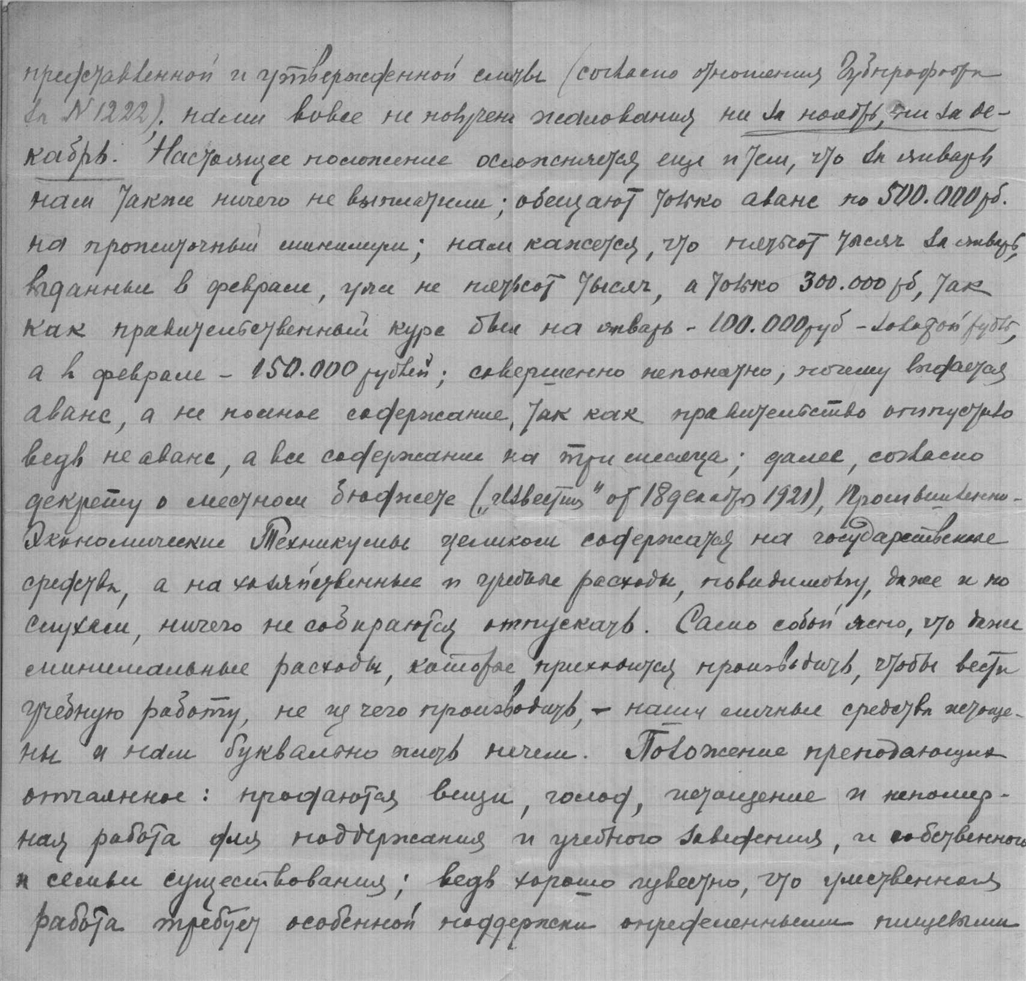 представленной и утвержденной сметы (согласно отношения Губпрофобра
за N 1222), нами вовсе не получено жалования ни за ноябрь, ни за де-
кабрь. Настоящее положение осложняется еще и тем, что за январь
нам также ничего не выплатили; обещают только аванс по 500.000 рб.
на прожиточный минимум; нам кажется, что пятьсот тысяч за январь,
выданные в феврале, уже не пятьсот тысяч, а только 300.000 рб, так
как правительственный курс был на январь - 100.000 руб - золотой рубль,
а в феврале - 150.000 рублей; совершенно непонятно, почему выдается
аванс, а не полное содержание, так как правительство отпустило
ведь не аванс, а все содержание на три месяца; далее, согласно
декрету о местном бюджете („Известия" от 18 декабря 1921), Промышленно-
Экономические Техникумы целиком содержатся на государственные
средства, а на хозяйственные и учебные расходы, повидимому, даже и по
слухам, ничего не собираются отпускать. Само собой ясно, что даже
минимальные расходы, которые приходится производить, чтобы вести
учебную работу, не из чего производить, - наши личные средства истоще-
ны и нам буквально жить нечем. Положение преподающих
отчаянное: продаются вещи, голод, истощение и непомер-
ная работа для поддержания и учебного заведения, и собственного
и семьи существования; ведь хорошо известно, что умственная
работа требует особенной поддержки определенными пищевыми